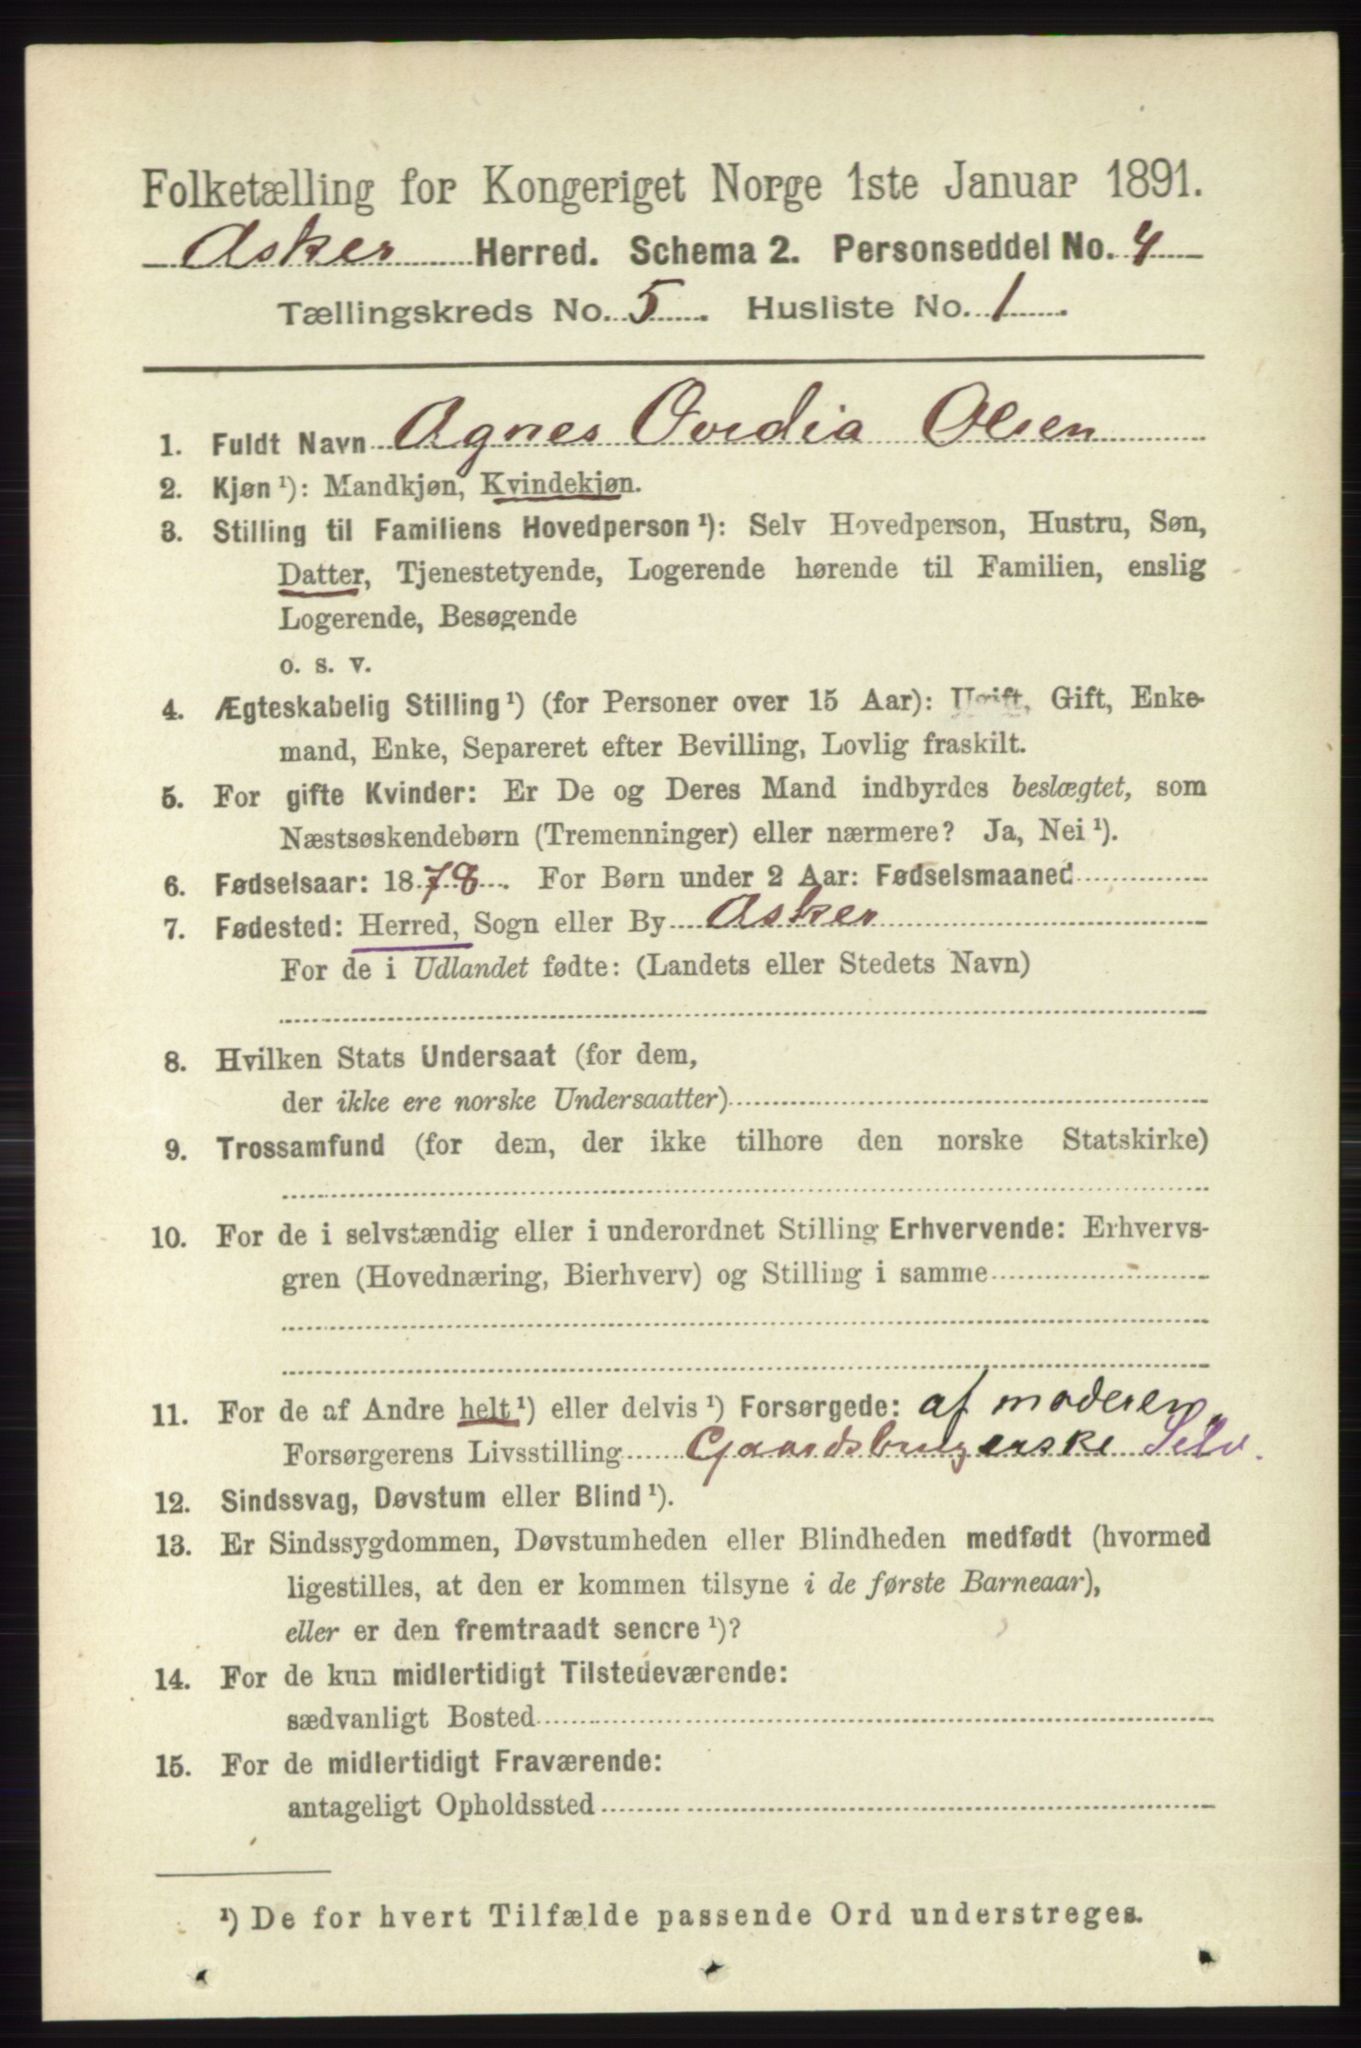 Folketælling for Kongeriget Norge 1ste Januar 1891.
Asker Herred. Schema 2. Personseddel No. 4
Tællingskreds No. 5. Husliste No. 1.
1. Fuldt Navn Agnes Ovedia Olsen
2. Kjøn ¹): Mandkjøn, Kvindekjøn.
3. Stilling til Familiens Hovedperson ¹): Selv Hovedperson, Hustru, Søn,
Datter, Tjenestetyende, Logerende hørende til Familien, enslig
Logerende, Besøgende
o. s. v.
4. Ægteskabelig Stilling ¹) (for Personer over 15 Aar): Ugift, Gift, Enke-
mand, Enke, Separeret efter Bevilling, Lovlig fraskilt.
5. For gifte Kvinder: Er De og Deres Mand indbyrdes beslægtet, som
Næstsøskendebørn (Tremenninger) eller nærmere? Ja, Nei ¹).
6. Fødselsaar: 1878. For Børn under 2 Aar: Fødselsmaaned
7. Fødested: Herred, Sogn eller By Asker
For de i Udlandet fødte: (Landets eller Stedets Navn)
8. Hvilken Stats Undersaat (for dem,
der ikke ere norske Undersaatter)
9. Trossamfund (for dem, der ikke tilhøre den norske Statskirke)
10. For de i selvstændig eller i underordnet Stilling Erhvervende: Erhvervs-
gren (Hovednæring, Bierhverv) og Stilling i samme
11. For de af Andre helt ¹) eller delvis ¹) Forsørgede: af moderen,
Forsørgerens Livsstilling Gaardbrugerske Selv.
12. Sindssvag, Døvstum eller Blind ¹).
13. Er Sindssygdommen, Døvstumheden eller Blindheden medfødt (hvormed
ligestilles, at den er kommen tilsyne i de første Barneaar),
eller er den fremtraadt senere ¹)?
14. For de kun midlertidigt Tilstedeværende:
sædvanligt Bosted
15. For de midlertidigt Fraværende:
antageligt Opholdssted
¹) De for hvert Tilfælde passende Ord understreges.